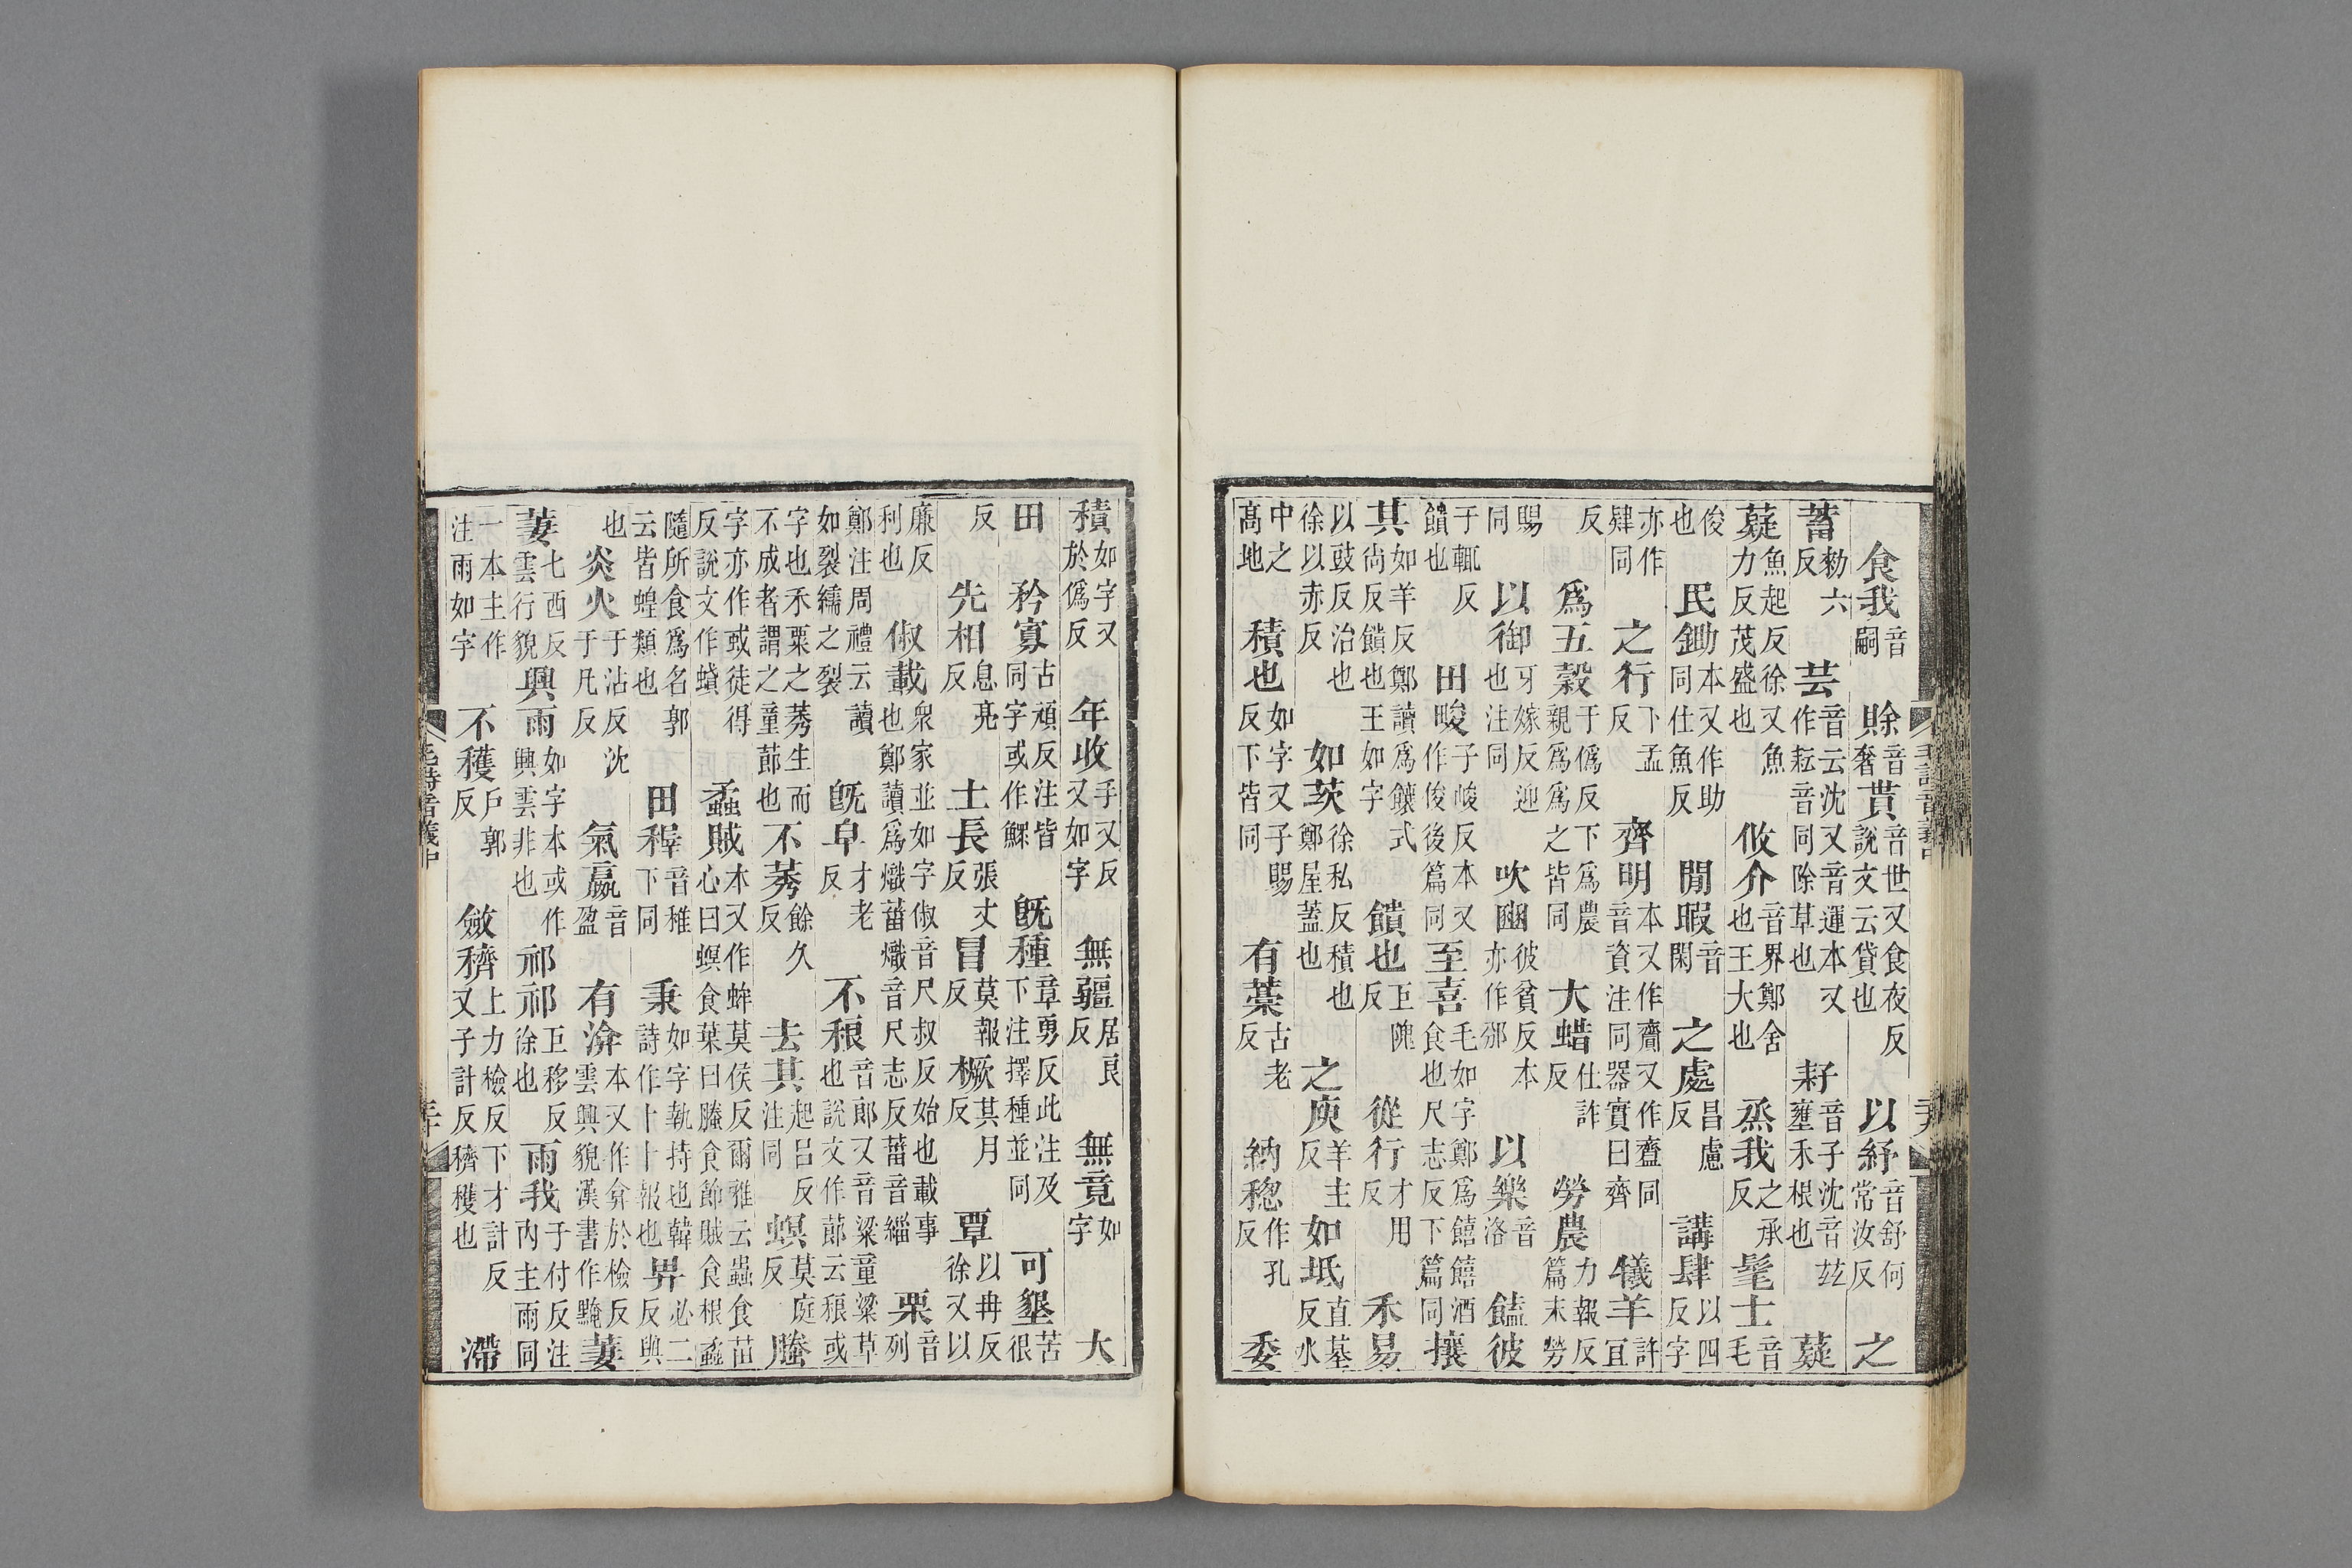 食我音嗣賖音奢貰音世又食夜反說文云貸也以紓音舒何常汝反之
蓄勑六反芸音云沈又音運本又作耘音同除草也耔音子沈音玆壅禾根也薿
薿魚起反徐又魚力反茂盛也攸介音界鄭舍也王大也烝我之承反髦士音毛
俊也民鋤本又作助同仕魚反閒暇音閑之處昌慮反講肆以四反字
亦作肄同之行下孟反齊明本又作齎又作齍同音資注同器實曰齊犧羊許宜
反爲五穀于僞反下爲農親爲爲之皆同大蜡仕詐反勞農力報反篇末勞
賜同以御牙嫁反迎也注同吹豳彼貧反本亦作邠以樂音洛饁彼
于輒反饋也田畯子峻反本又作俊後篇同至喜毛如字鄭爲饎饎酒食也尺志反下篇同攘
其如羊反鄭讀爲饟式尚反饋也王如字饋也巨隗反從行才用反禾易
以豉反治也徐以赤反如茨徐私反積也鄭屋蓋也之庾羊主反如坻直基反水
中之高地積也如字又子賜反下皆同有藁古老反納稯作孔反委
積如字又於僞反年收手又反又如字無疆居良反無竟如字大
田矜寡古頑反注皆同字或作鰥旣種章勇反此注及下注擇種並同可墾苦很
反先相息亮反土長張丈反冒莫報反橛其月反覃以冉反徐又以
廉反利也俶載衆家並如字俶音尺叔反始也載事也鄭讀爲熾菑熾音尺志反菑音緇栗音列
鄭注周禮云讀如裂繻之裂旣阜才老反不稂音郎又音粱童粱草也說文作蓈云稂或
字也禾粟之莠生而不成者謂之童蓈也不莠餘久反去其起呂反注同螟莫庭反螣
字亦作䘌徒得反說文作蟘蟊賊本又作蛑莫侯反爾雅云蟲食苗心曰螟食葉曰螣食節賊食根蟊
隨所食爲名郭云皆蝗類也田穉音稚下同秉如字執持也韓詩作卜卜報也畀必二反與
也炎火于沾反沈于凡反氣嬴音盈有渰本又作弇於檢反雲興貌漢書作黤萋
萋七西反雲行貌興雨如字本或作興雲非也祁祁巨移反徐也雨我于付反注內主雨同
一本主作注雨如字不穫戶郭反斂穧上力檢反下才計反又子計反穧穫也滯
毛詩音義中